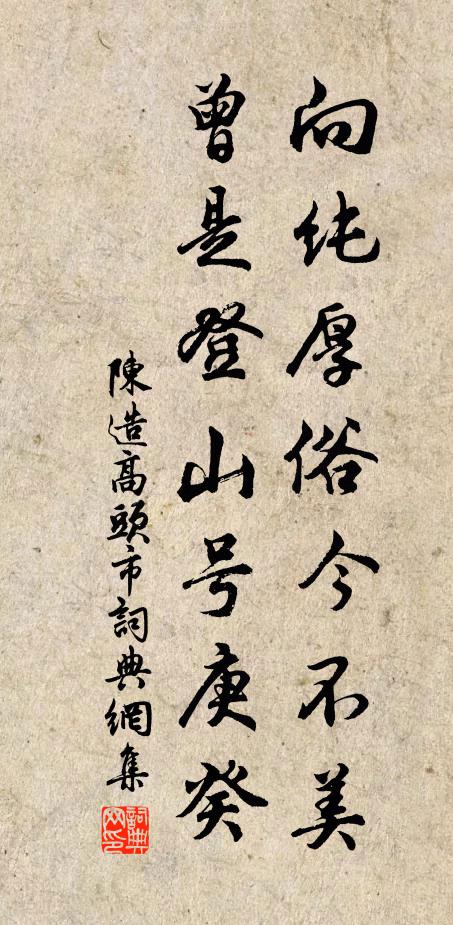 向纯厚俗今不美
曾是登山号庚癸
陳造高頭市詞典網集
詞典网印